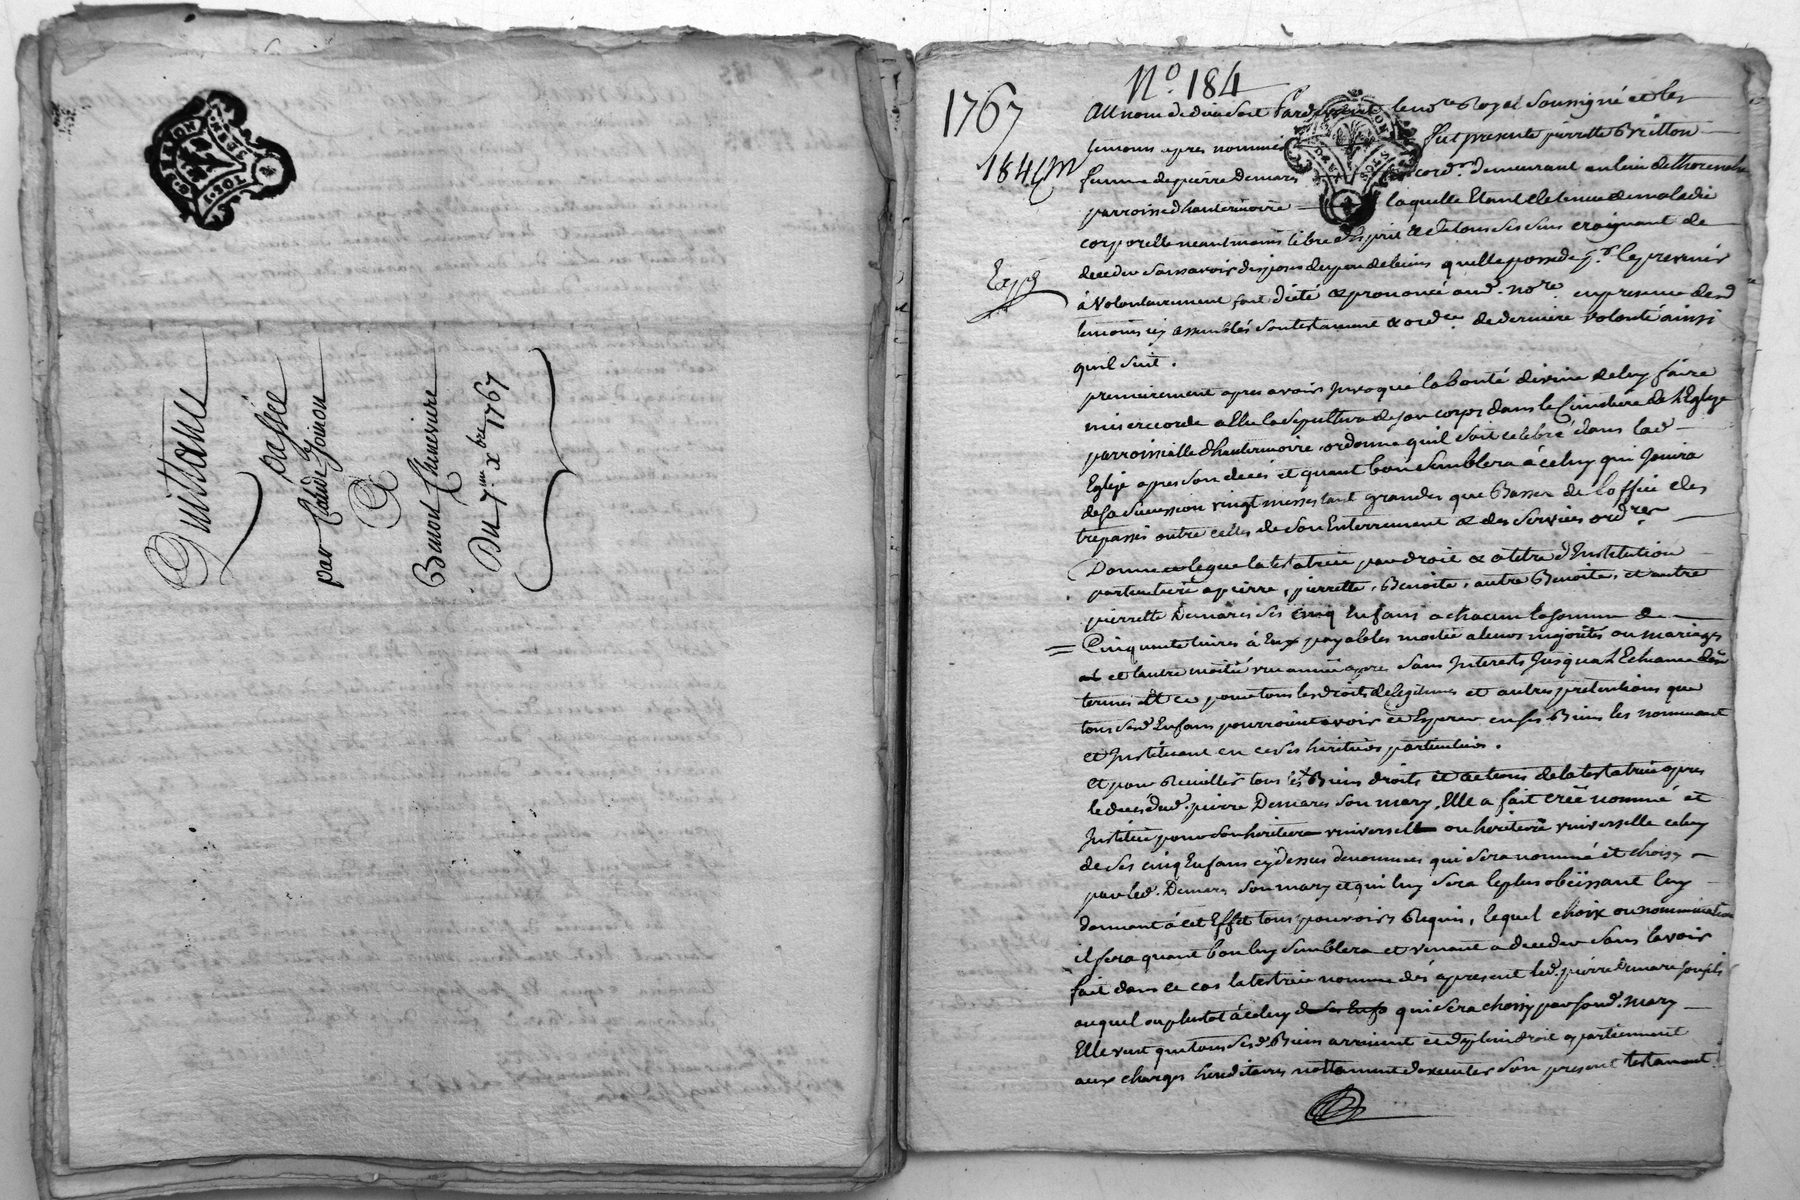 Quittance
passée
par Claude Goinon
A
Benoit Chenevriere
Du 7.me Xbre 1767
N.o 184
1767
184
Expé
Au nom de dieu soit Pardevant le no.re Royal soussigné et les
temoins apres nommés fut presente pierrette Britton
femme de pierre Demares cord.er demeurant au lieu de
parroisse d'hauterivoire laquelle Etant detenue de maladie
corporelle neantmoins libre d'esprit & de tous ses sens craignant de
deceder sans avoir disposé du peu de biens quelle possede p.r le prevenir
à volontairement fait dicté & prononcé aud. no.re en presence desd
temoins icy assemblés son testament & ord.ce de derniere volonté ainsi
quil suit.
premierement apres avoir Invoqué la bonté divine de luy faire
misericorde a Elu la sepulture de son corps dans le Cimetiere de l'Eglise
parroissialle d'hauterivoire ordonne quil soit celebré dans lad.
Eglise apres son decès et quant bon semblera à celuy qui Jouira
de sa succession vingt messes tant grandes que Basses de l'office des
trepassés outre celles de son Enterrement & des services ord.res
Donne et legue la testatrice par droit & a titre d'Institution
particuliere a pierre, pierrette, Benoite, autre Benoite, et autre
pierrette Demares ses cinq Enfans a chacun la somme de
Cinquante livres à Eux payables moitié a leurs majorités ou mariages
et l'autre moitié une année apres sans Interests Jusqua l'Echeance des
termes Et ce pour tous les droits de legitimes et autres pretentions que
tous sesd. Enfans pourroient avoir et Esperer en ses Biens les nommant
et Instituant en ce ses heritiers particuliers.
et pour Recueillir tous ses Biens droits et actions de la testatrice apres
le deces dud. pierre Demares son mary, Elle a fait créé nommé et
Institué pour son heritiere universelle ou heritiere universelle celuy
de ses cinq Enfans cy dessus denommés qui sera nommé et choisy
par led. Demares son mary et qui luy sera le plus obëissant luy
donnant à cet Effet tous pouvoirs Requis, lequel choix ou nomination
il fera quant bon luy semblera et venant a deceder sans lavoir
fait dans ce cas la testatrice nomme dès apresent led. pierre Demares son fils
auquel ou plustot à celuy de ses Enfs qui sera choisy par sond. mary
Elle veut que tous sesd. Biens arrivent et de plein droit apartiennent
aux charges hereditaires nottamment dexecuter son present testament